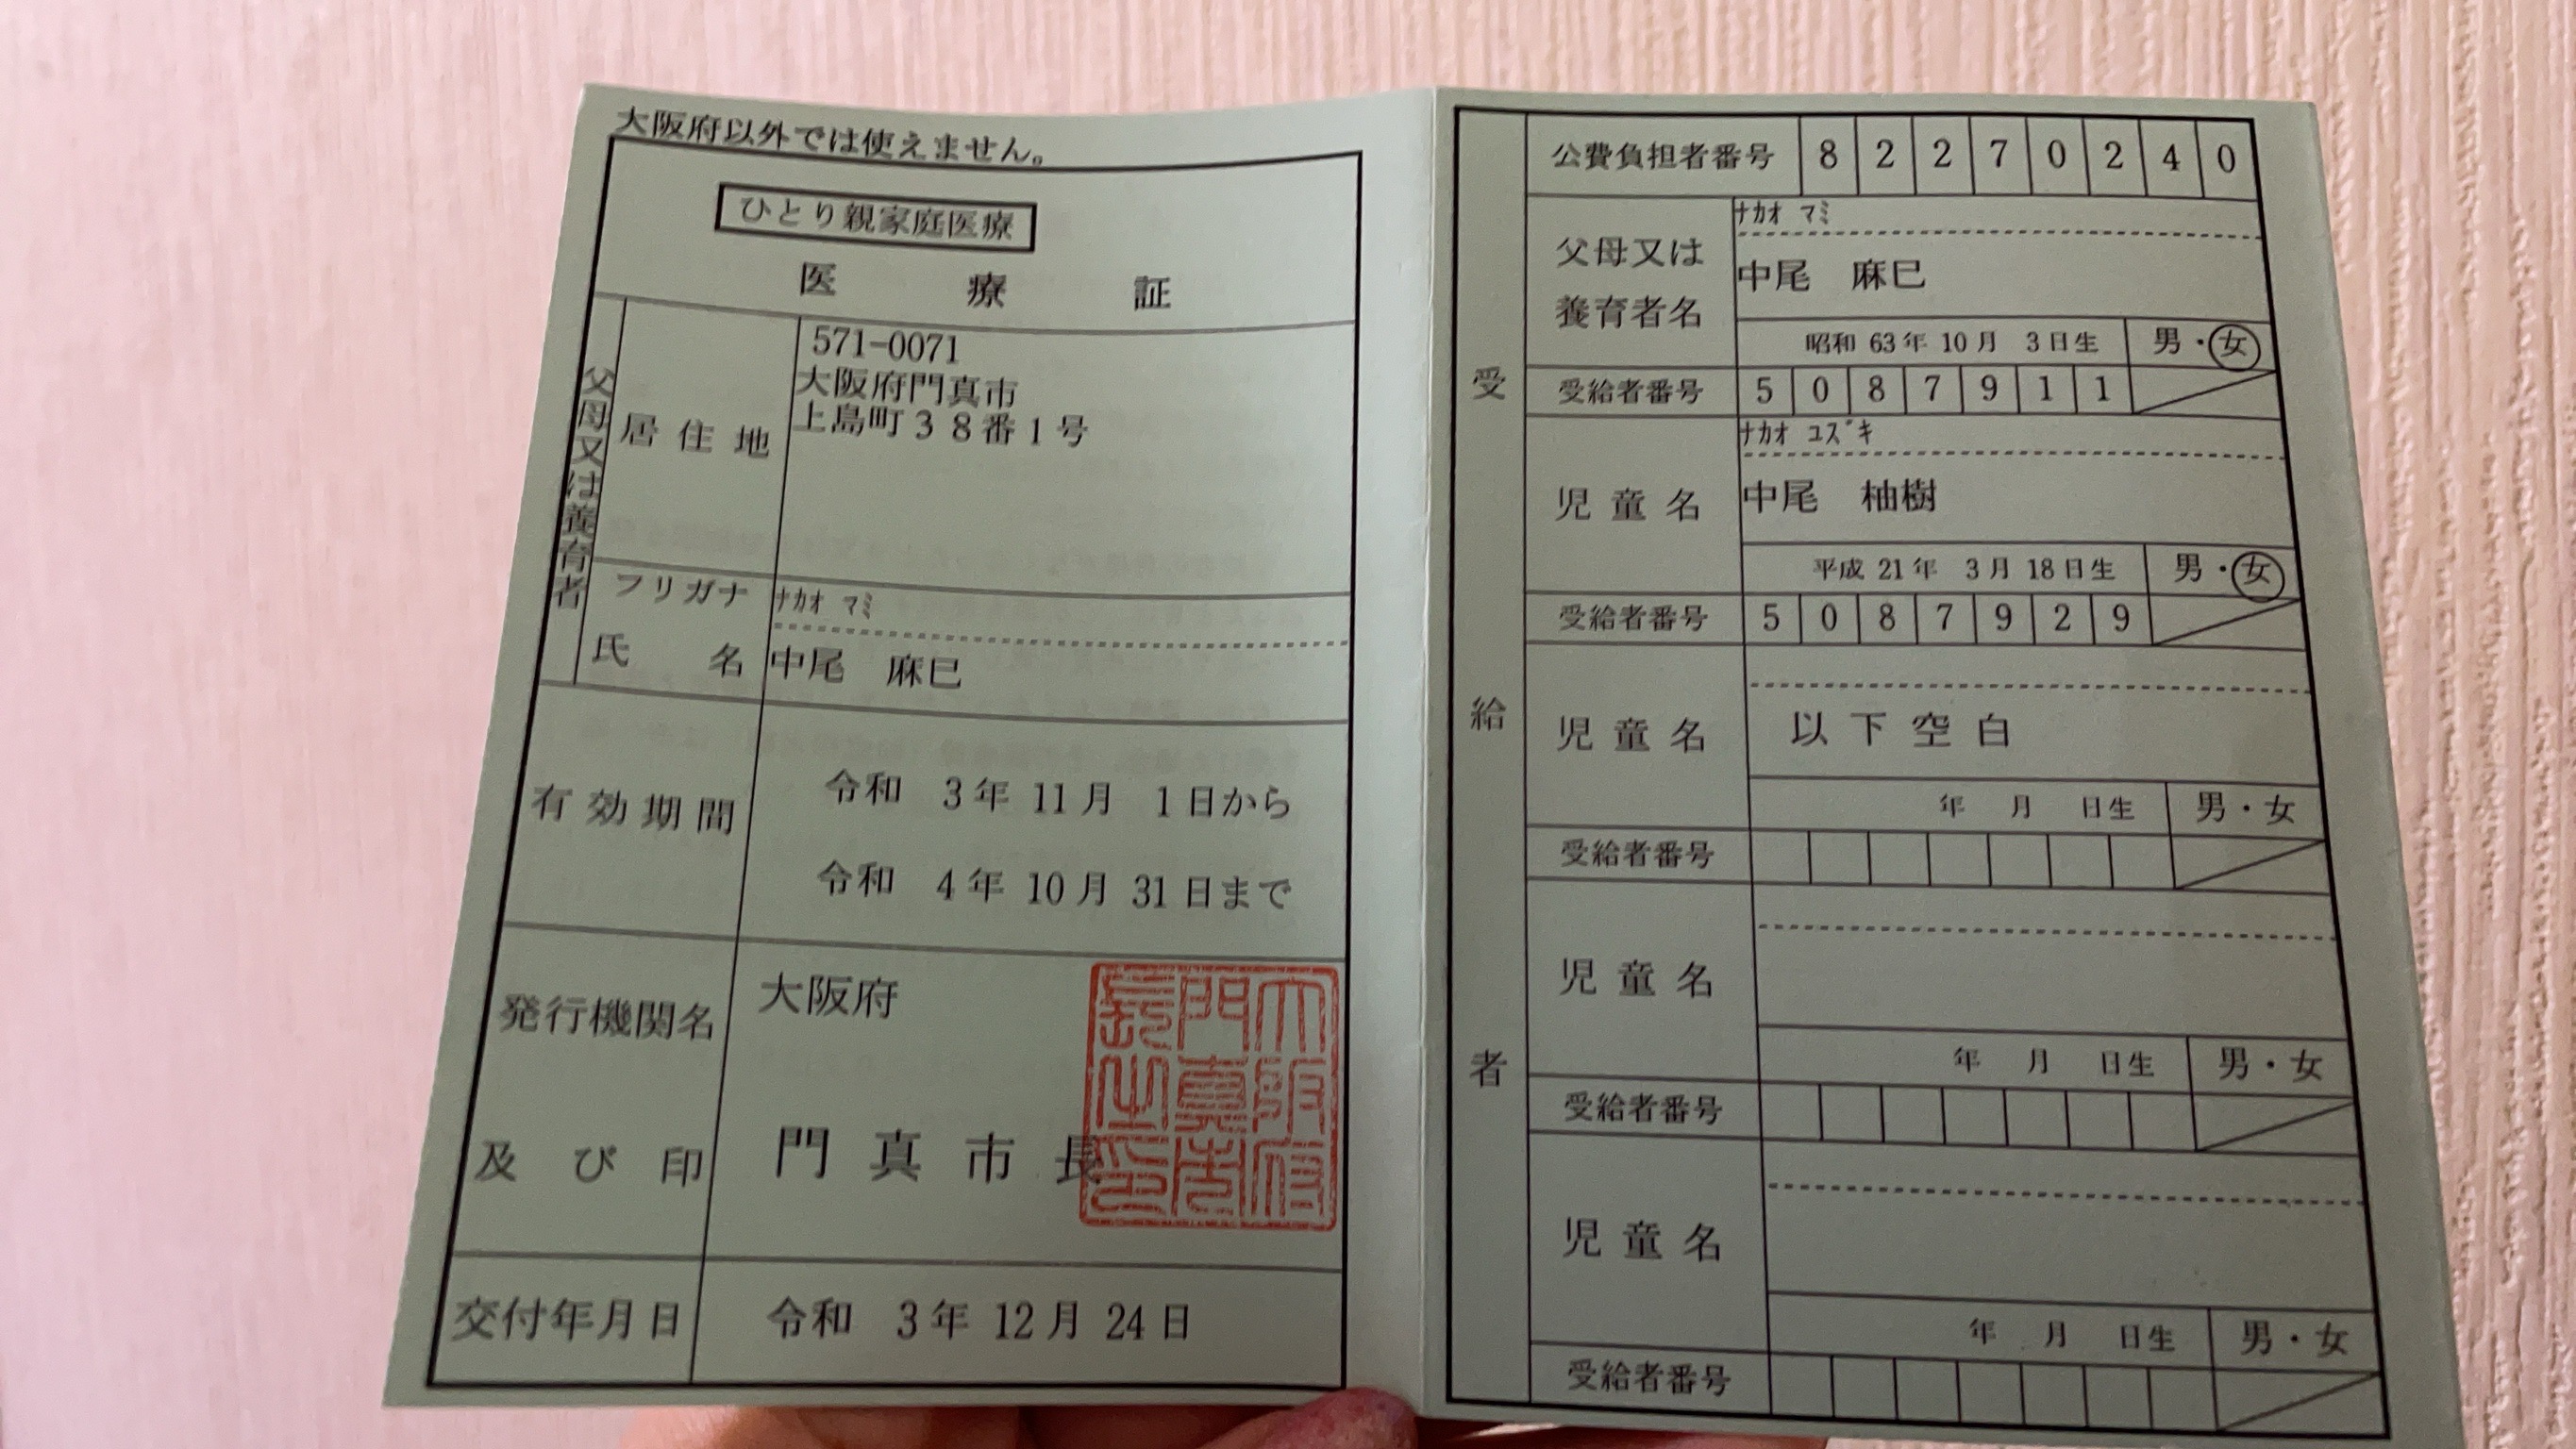 大阪府以外では使えません。
ひとり親家庭医療
医療証
父母又は養育者
居住地
571-0071
大阪府門真市
上島町38番1号
フリガナ ナカオ マミ
氏名 中尾 麻巳
有効期間
令和 3年 11月 1日から
令和 4年 10月 31日まで
発行機関名 大阪府
及び印 門真市長
大阪府門真市長之印
交付年月日 令和 3年 12月 24日
受給者
公費負担者番号 8 2 2 7 0 2 4 0
父母又は養育者名
ナカオ マミ
中尾 麻巳
昭和 63年 10月 3日生 男・女
受給者番号 5 0 8 7 9 1 1
ナカオ ユズキ
児童名 中尾 柚樹
平成 21年 3月 18日生 男・女
受給者番号 5 0 8 7 9 2 9
児童名 以下空白
年 月 日生 男・女
受給者番号
児童名
年 月 日生 男・女
受給者番号
児童名
年 月 日生 男・女
受給者番号